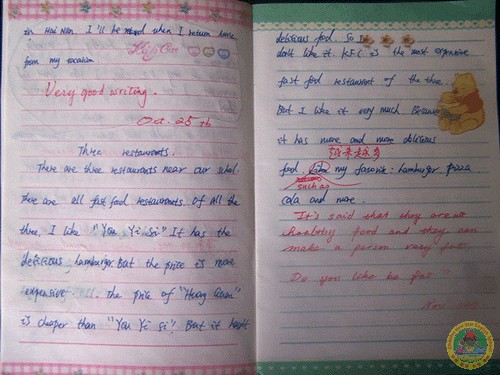 in Hai Nan I'll be when I return home
from my vacation
Very good writing.
Oct. 25th
Three restaurants.
There are three restaurants near our school.
There are all fast food restaurants. Of all the
three, I like "You Yi Si". It has the
delicious hamburger. But the price is more
expensive. The price of "Huang Guan"
is cheaper than "You Yi Si". But it hasn't
delicious food. So I
don't like it. KFC is the most expensive
fast food restaurant of the three.
But I like it very much. Because
it has more and more delicious
越来越多
food. my favorite. hamburger. pizza
such as
cola and more.
It's said that they are not
healthy food and they can
make a person very fat.
Do you like be fat?
Nov